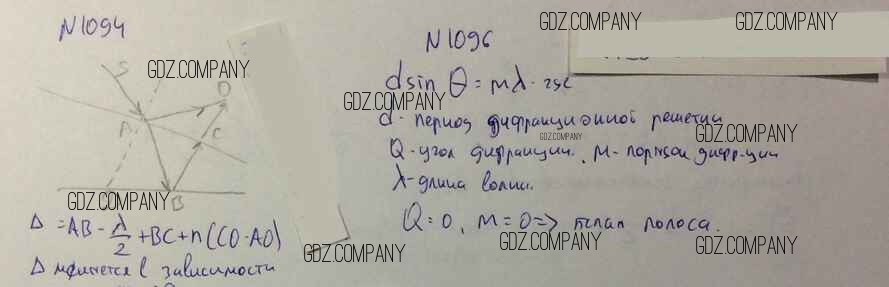 N1094
S
D
A
C
B
Δ = AB - λ/2 + BC + n(CO-AO)
Δ меняется в зависимости
N1096
d sin θ = mλ. где
d - период дифракционной решетки
Q - угол дифракции. м - порядок дифр-ции
λ - длина волны.
Q = 0, м = 0 => полоса.
GDZ.COMPANY
GDZ.COMPANY
GDZ.COMPANY
GDZ.COMPANY
GDZ.COMPANY
GDZ.COMPANY
GDZ.COMPANY
GDZ.COMPANY
GDZ.COMPANY
GDZ.COMPANY
GDZ.COMPANY
GDZ.COMPANY